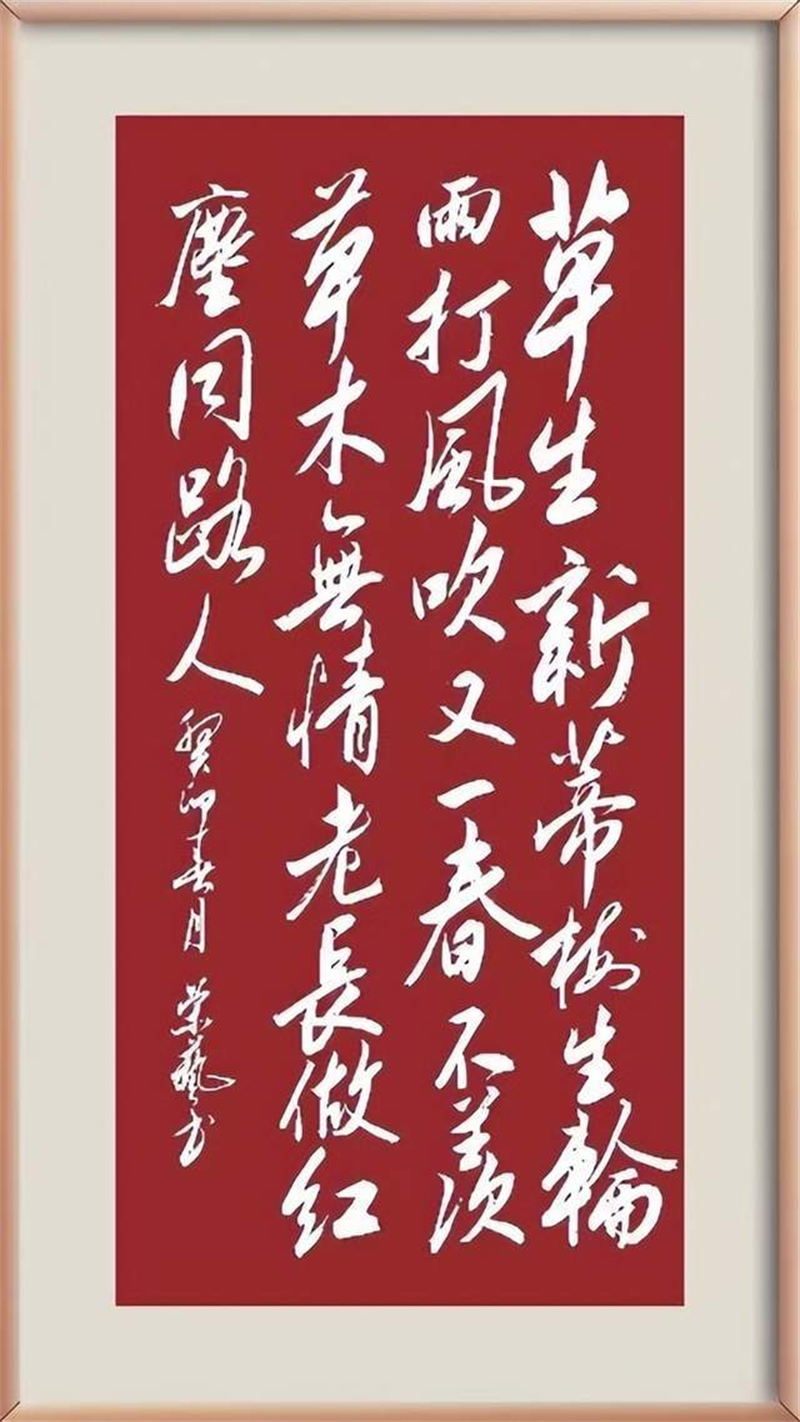 草生新蒂樹生輪
雨打風吹又一春不羡
草木無情老長做红
塵同路人癸卯十春月荣藝书